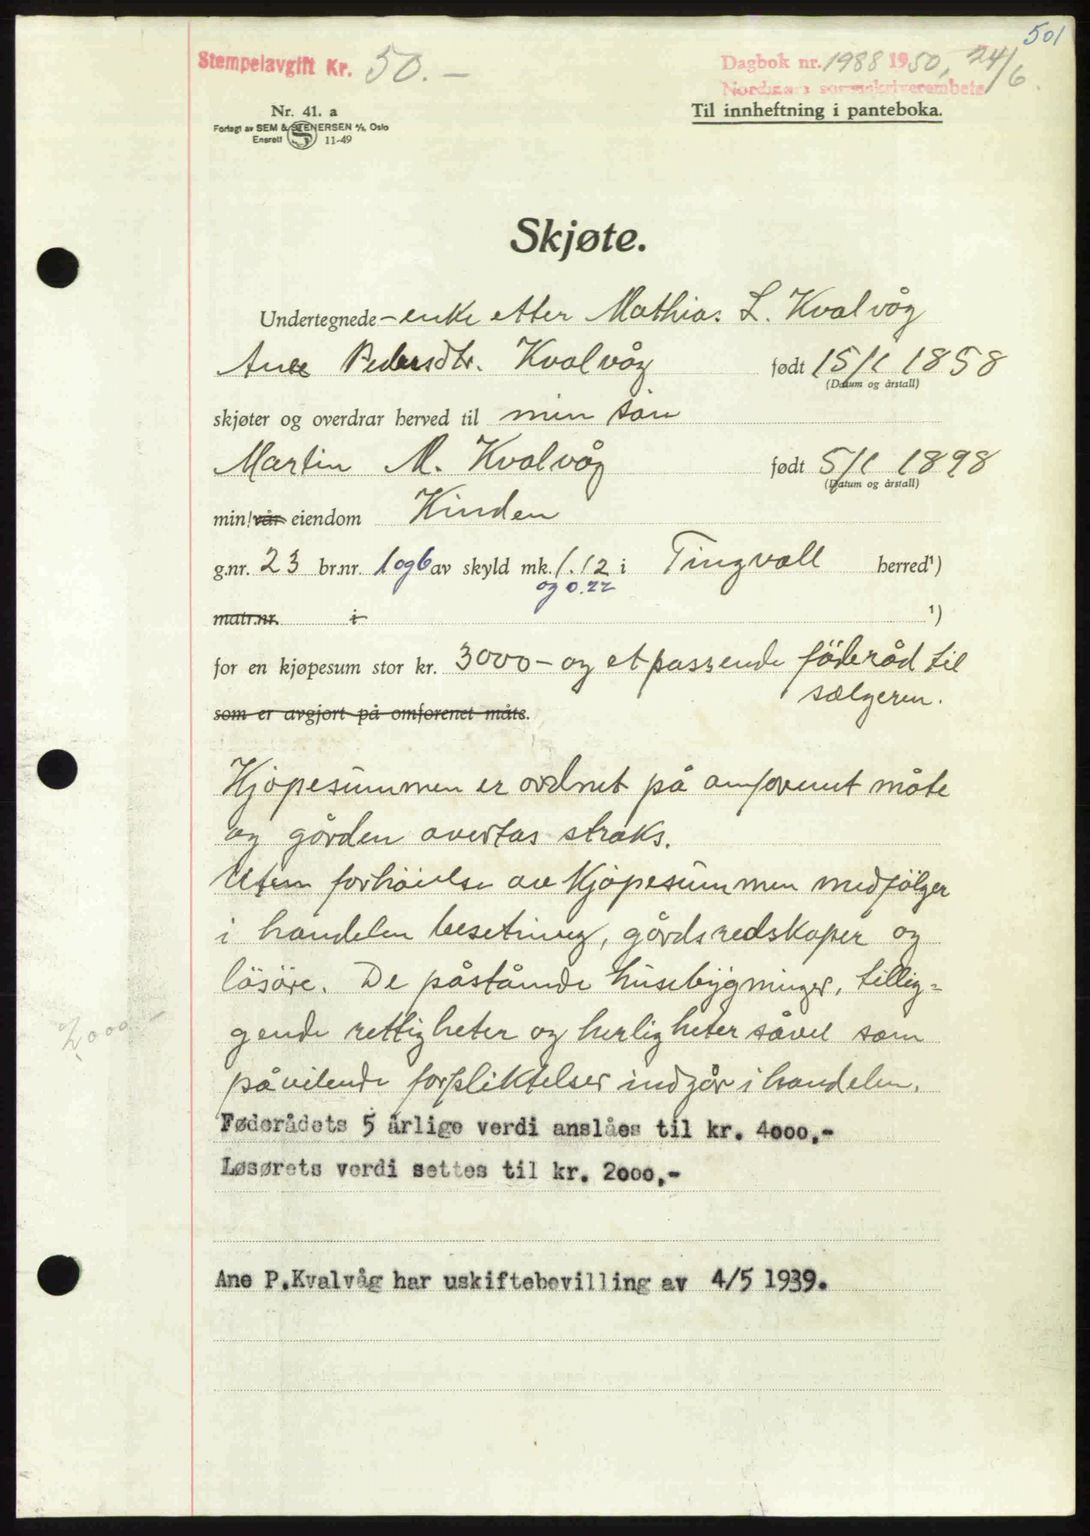 501
Stempelavgift Kr. 50.-
Dagbok nr. 1988 1950, 24/6.
Nordmøre sorenskriverembete
Nr. 41. a
Forlagt av SEM & STENERSEN A/S, Oslo
Enerett 11-49
Til innheftning i panteboka.
Skjøte.
Undertegnede - enke etter Mathias L. Kvalvåg
Ane Pedersdtr. Kvalvåg født 15/1 1858
(Datum og årstall)
skjøter og overdrar herved til min sön
Martin M. Kvalvåg født 5/1 1898
(Datum og årstall)
min/vår eiendom Kinden
g.nr. 23 br.nr. 1 og 6 av skyld mk. 1.12 i Tingvoll herred¹)
og 0.22
matr.nr. i ¹)
for en kjøpesum stor kr. 3000- og et passende föderåd til
sælgeren.
som er avgjort på omforenet måte.
Kjöpesummen er ordnet på omforenet måte
og gården overtas straks.
Uten forhöielse av Kjöpesummen medfölger
i handelen besetning, gårdsredskaper og
lösöre. De påstående husebygninger, tillig=
gende rettigheter og herligheter såvel som
påvilende forpliktelser indgår i handelen.
2000 -
Føderådets 5 årlige verdi anslåes til kr. 4000,-
Løsørets verdi settes til kr. 2000,-
Ane P.Kvalvåg har uskiftebevilling av 4/5 1939.